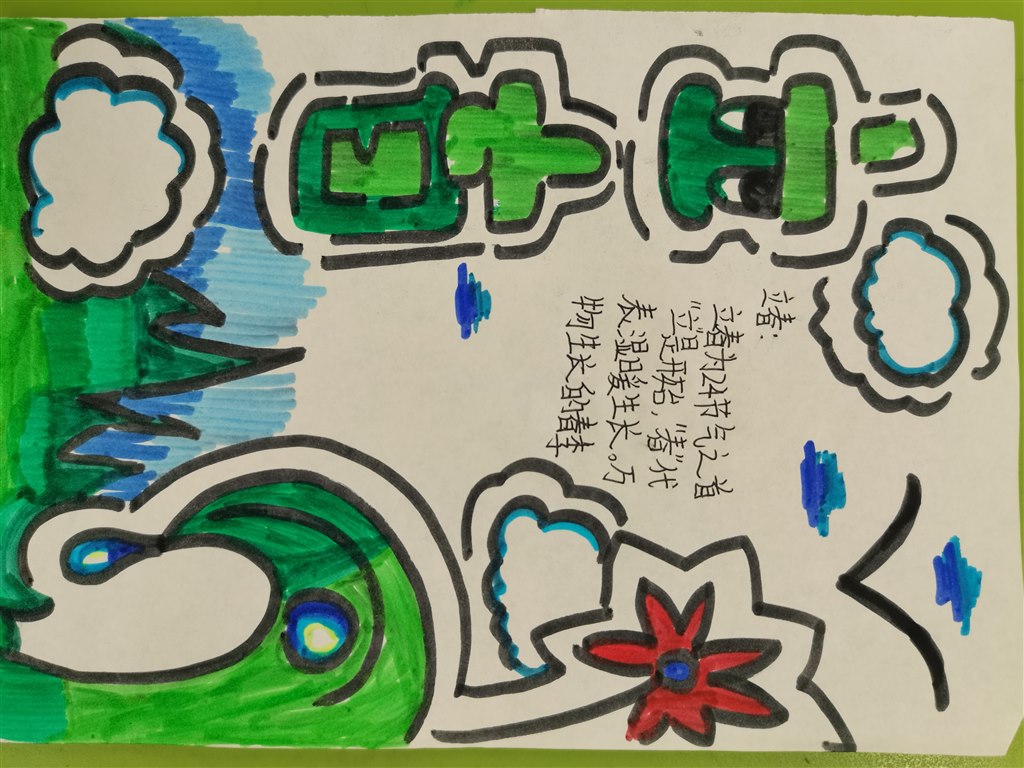 立
春
立春：
立春为24节气之首
“立”是开始，“春”代
表温暖生长。万
物生长的春季